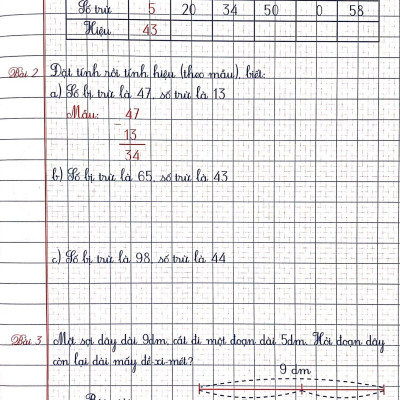 Số trừ 5 20 34 50 0 58
Hiệu 43
Bài 2 Đặt tính rồi tính hiệu (theo mẫu), biết:
a) Số bị trừ là 47, số trừ là 13
Mẫu: 47
-
13
34
b) Số bị trừ là 65, số trừ là 43
c) Số bị trừ là 98, số trừ là 44
Bài 3 Một sợi dây dài 9dm, cắt đi một đoạn dài 5dm. Hỏi đoạn dây
còn lại dài mấy đề-xi-mét?
9 dm